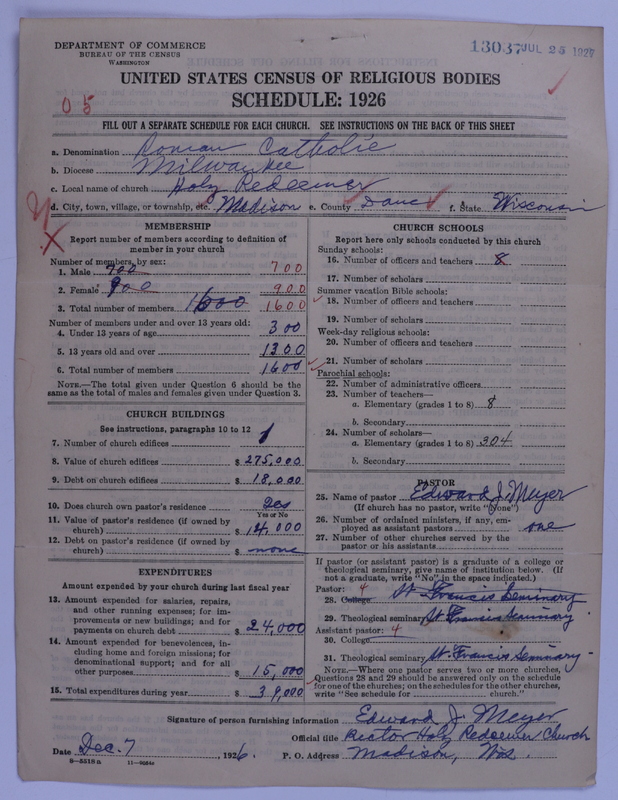 DEPARTMENT OF COMMERCE
BUREAU OF THE CENSUS
WASHINGTON
13037 JUL 25 1927
UNITED STATES CENSUS OF RELIGIOUS BODIES
SCHEDULE: 1926
05
FILL OUT A SEPARATE SCHEDULE FOR EACH CHURCH. SEE INSTRUCTIONS ON THE BACK OF THIS SHEET
a. Denomination Roman Catholic
b. Diocese Milwaukee
c. Local name of church Holy Redeemer
d. City, town, village, or township, etc. Madison e. County Dane f. State Wisconsin
MEMBERSHIP
Report number of members according to definition of
member in your church
Number of members, by sex:
1. Male 700 700
2. Female 900 900
3. Total number of members 1600 1600
Number of members under and over 13 years old:
4. Under 13 years of age 300
5. 13 years old and over 1300
6. Total number of members 1600
NOTE.—The total given under Question 6 should be the
same as the total of males and females given under Question 3.
CHURCH BUILDINGS
See instructions, paragraphs 10 to 12
7. Number of church edifices 1
8. Value of church edifices $ 275,000
9. Debt on church edifices $ 18,000
10. Does church own pastor's residence Yes
Yes or No
11. Value of pastor's residence (if owned by
church) $ 14,000
12. Debt on pastor's residence (if owned by
church) $ none
EXPENDITURES
Amount expended by your church during last fiscal year
13. Amount expended for salaries, repairs,
and other running expenses; for im-
provements or new buildings; and for
payments on church debt $ 24,000
14. Amount expended for benevolences, in-
cluding home and foreign missions; for
denominational support; and for all
other purposes $ 15,000
15. Total expenditures during year $ 39,000
CHURCH SCHOOLS
Report here only schools conducted by this church
Sunday schools:
16. Number of officers and teachers 8
17. Number of scholars
Summer vacation Bible schools:
18. Number of officers and teachers
19. Number of scholars
Week-day religious schools:
20. Number of officers and teachers
21. Number of scholars
Parochial schools:
22. Number of administrative officers
23. Number of teachers—
a. Elementary (grades 1 to 8) 8
b. Secondary
24. Number of scholars—
a. Elementary (grades 1 to 8) 304
b. Secondary
PASTOR
25. Name of pastor Edward J. Meyer
(If church has no pastor, write "None")
26. Number of ordained ministers, if any, em-
ployed as assistant pastors one
27. Number of other churches served by the
pastor or his assistants
If pastor (or assistant pastor) is a graduate of a college or
theological seminary, give name of institution below. (If
not a graduate, write "No" in the space indicated.)
Pastor: 4
28. College St Francis Seminary
29. Theological seminary St Francis Seminary
Assistant pastor: 4
30. College
31. Theological seminary St Francis Seminary
NOTE.—Where one pastor serves two or more churches,
Questions 28 and 29 should be answered only on the schedule
for one of the churches; on the schedules for the other churches,
write "See schedule for church."
Signature of person furnishing information Edward J. Meyer
Official title Rector Holy Redeemer Church
Date Dec. 7, 1926. P. O. Address Madison, Wis.
8—5518 a